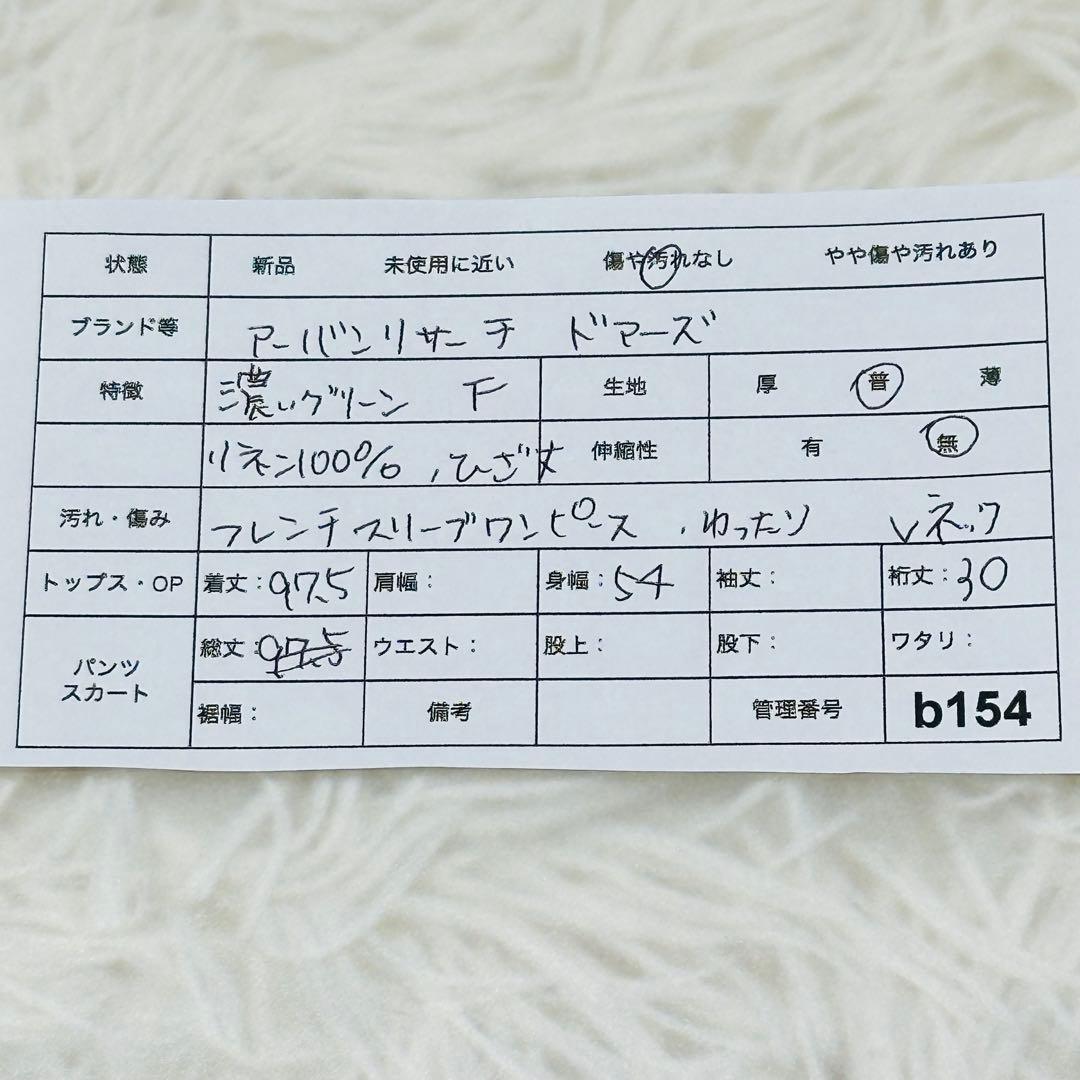 状態 新品 未使用に近い 傷や汚れなし やや傷や汚れあり
ブランド等 アーバンリサーチ ドアーズ
特徴 濃いグリーン F 生地 厚 普 薄
リネン100%、ひざ丈 伸縮性 有 無
汚れ・傷み フレンチスリーブワンピース、ゆったり Vネック
トップス・OP 着丈:97.5 肩幅: 身幅:54 袖丈: 裄丈:30
パンツ スカート 総丈:97.5 ウエスト: 股上: 股下: ワタリ:
裾幅: 備考 管理番号 b154